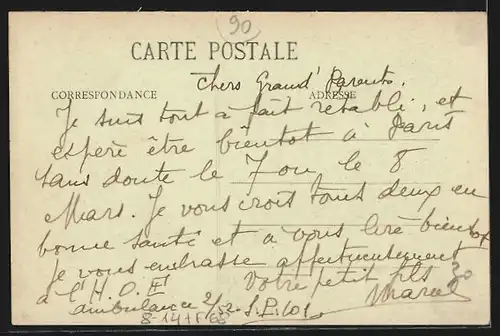 90
CARTE POSTALE
Chers Grand' Parents.
CORRESPONDANCE ADRESSE
Je suis tout à fait rétabli, et
espère être bientôt à Paris
sans doute le 7 ou le 8
Mars. Je vous crois tous deux en
bonne santé et à vous lire bientôt
Je vous embrasse affectueusement
Votre petit fils
à l'H.O.E Marcel
ambulance 2/52 S.P. 101